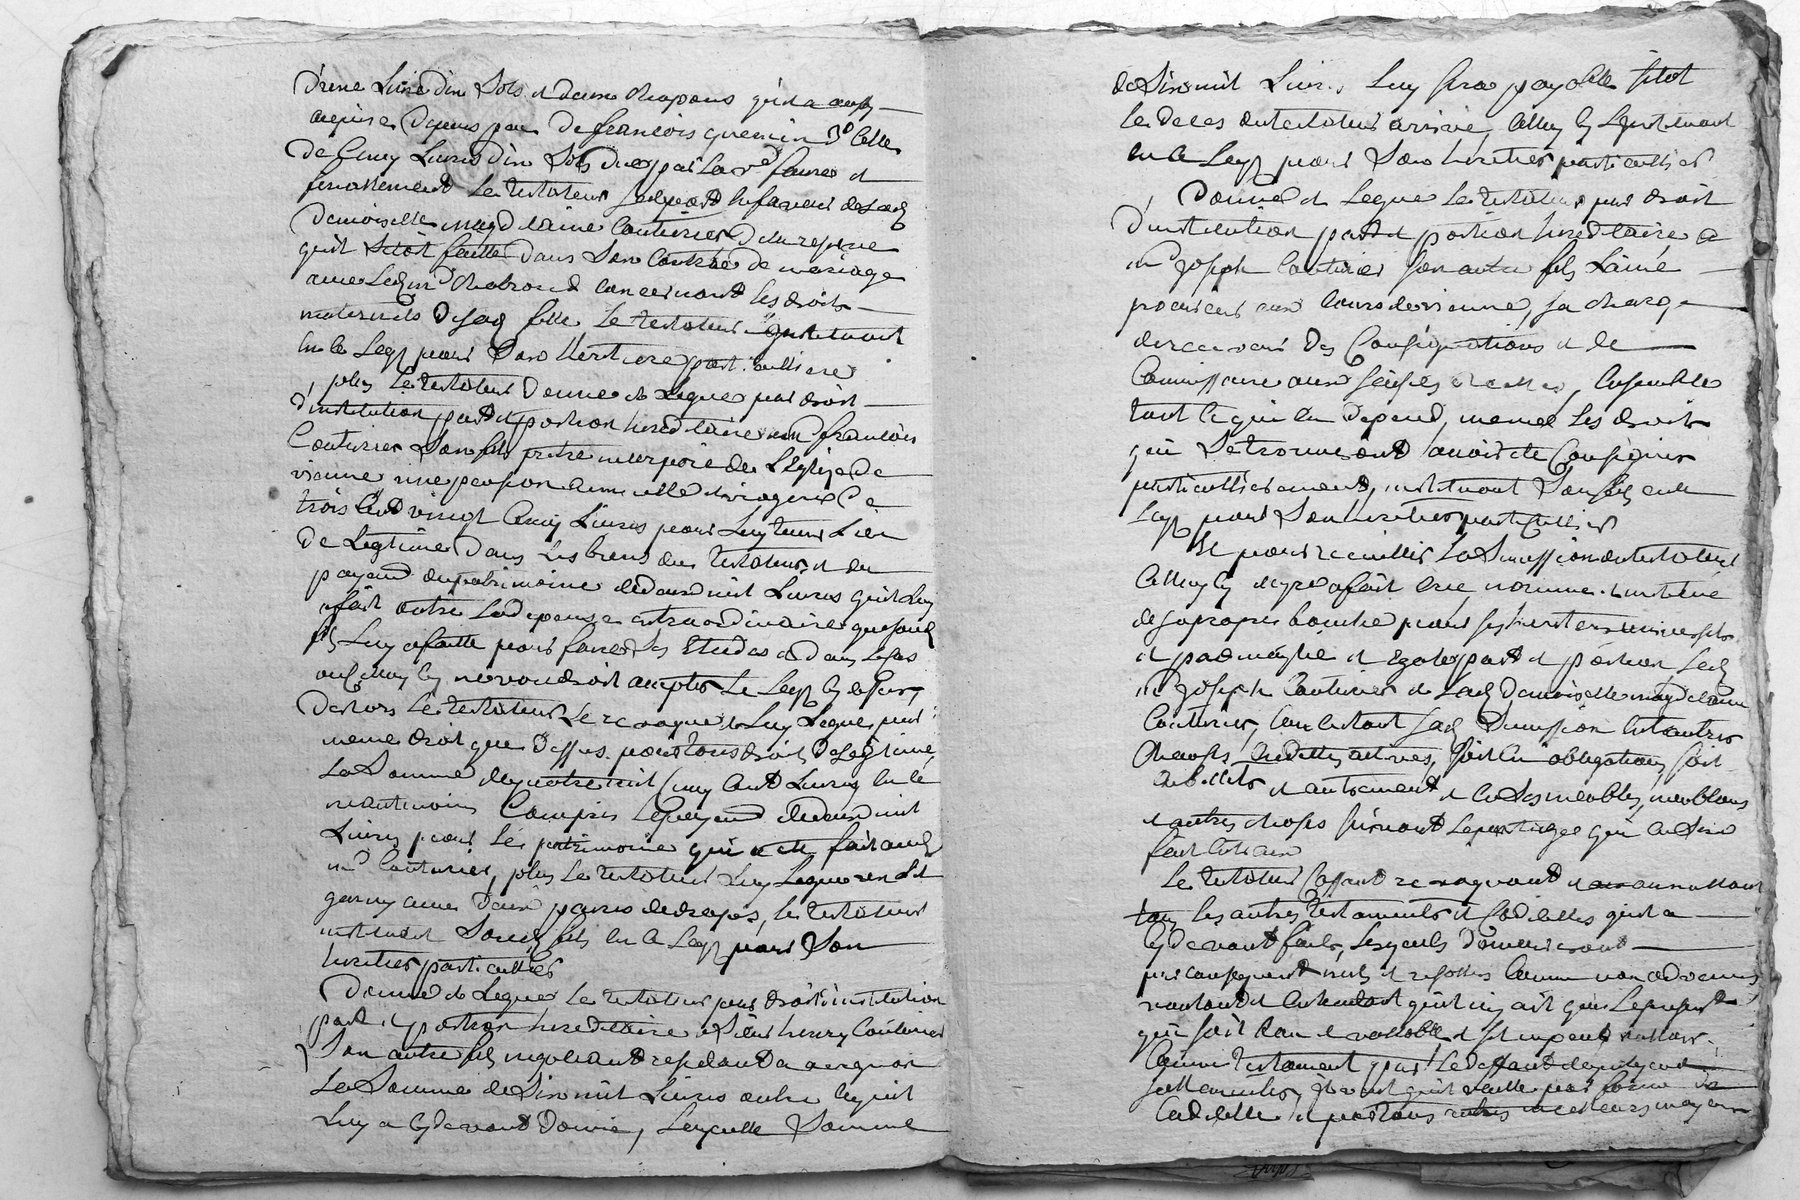 d'une Livre dix Sols et deux chapons qu'il a aussy
acquise depuis peu de françois guerin 3° celle
de Cinq Livres dix Sols due par la v.e faure et
finallement Le testateur en faveur de lad
Demoiselle magdelaine Couturier de la reserve
qu'il s'étoit faitte dans Son Contrat de mariage
avec Led m.r Chabroud concernant les droits
maternels de sad fille Le testateur L'instituant
en ce Legs pour Son heritiere particulliere
plus Le testateur donne et Legue par droit
d'institution part et portion hereditaire a m.e françois
Couturier Son fils pretre incorporé de L'Eglize de
vienne une pension annuelle et viagere de
trois Cent vingt Cinq Livres pour Luy tenir Lieu
de Legitime dans Les biens du testateur et du
payement du patrimoine de douze mil Livres qu'il luy
a fait outre la depense extraordinaire que sond
fils Luy a faitte pour faire Ses Etudes et dans le cas
ou ne voudroit accepter Le Legs
des lors Le testateur Le revoque et Luy Legue par
meme droit que dessus pour tous droits de Legitime
La Somme de quatre mil Cinq Cent Livres en ce
neantmoins Compris Le payement de douze mil
Livres pour Le patrimoine qui a été fait aud
m.e Couturier, plus Le testateur Luy Legue son Lit
garny avec deux paires de draps, le testateur
instituant Sond fils en ce Legs pour Son
heritier particullier
Donne et Legue Le testateur par droit d'institution
part et portion hereditaire a Sieur henry Couturier
Son autre fils negotiant residant a avignon
La Somme de Six mil Livres outre ce qu'il
Luy a cy devant donné, Laquelle Somme
de Six mil Livres Luy sera payable sitot
le deces du testateur arrivé, L'instituant
en ce Legs pour Son heritier particullier
Donne et Legue Le testateur par droit
d'institution part et portion hereditaire a
m.e Joseph Couturier son autre fils L'ainé
procureur aux Cours de vienne, sa charge
de receveur des Consignations et de
Commissaire aux Saisies reelles, Ensemble
tout ce qui en depend, meme Les droits
qui Se trouveront avoir été Consignés
particullierement, instituant Sond fils en ce
Legs pour Son heritier particullier
Et pour recueillir La Succession du testateur
a fait cree nommé et institué
de sa propre bouche pour ses heritiers universels
et par moytié et Egale part et portion Led
m.e Joseph Couturier et Lad demoiselle magdelaine
Couturier, Consistant Sad Succession entre autres
choses en dettes actives, soit en obligations, soit
en billets et autrement et en Ses meubles, meublans
et autres choses suivant Le partage qui en Sera
fait entr'eux
Le testateur Cassant revoquant et annullant
tous les autres testaments et Codicilles qu'il a
cy devant faits, Lesquels demeureront
par consequent nuls et resolus Comme non advenus
voulant et entendant qu'il n'y ait que Le present
qui soit bon et vallable et s'il ne peut valloir
Comme testament par Le deffaut de quelques
sollemnites, veut qu'il vaille par forme de
Codicille et par tous autres meilleurs moyens